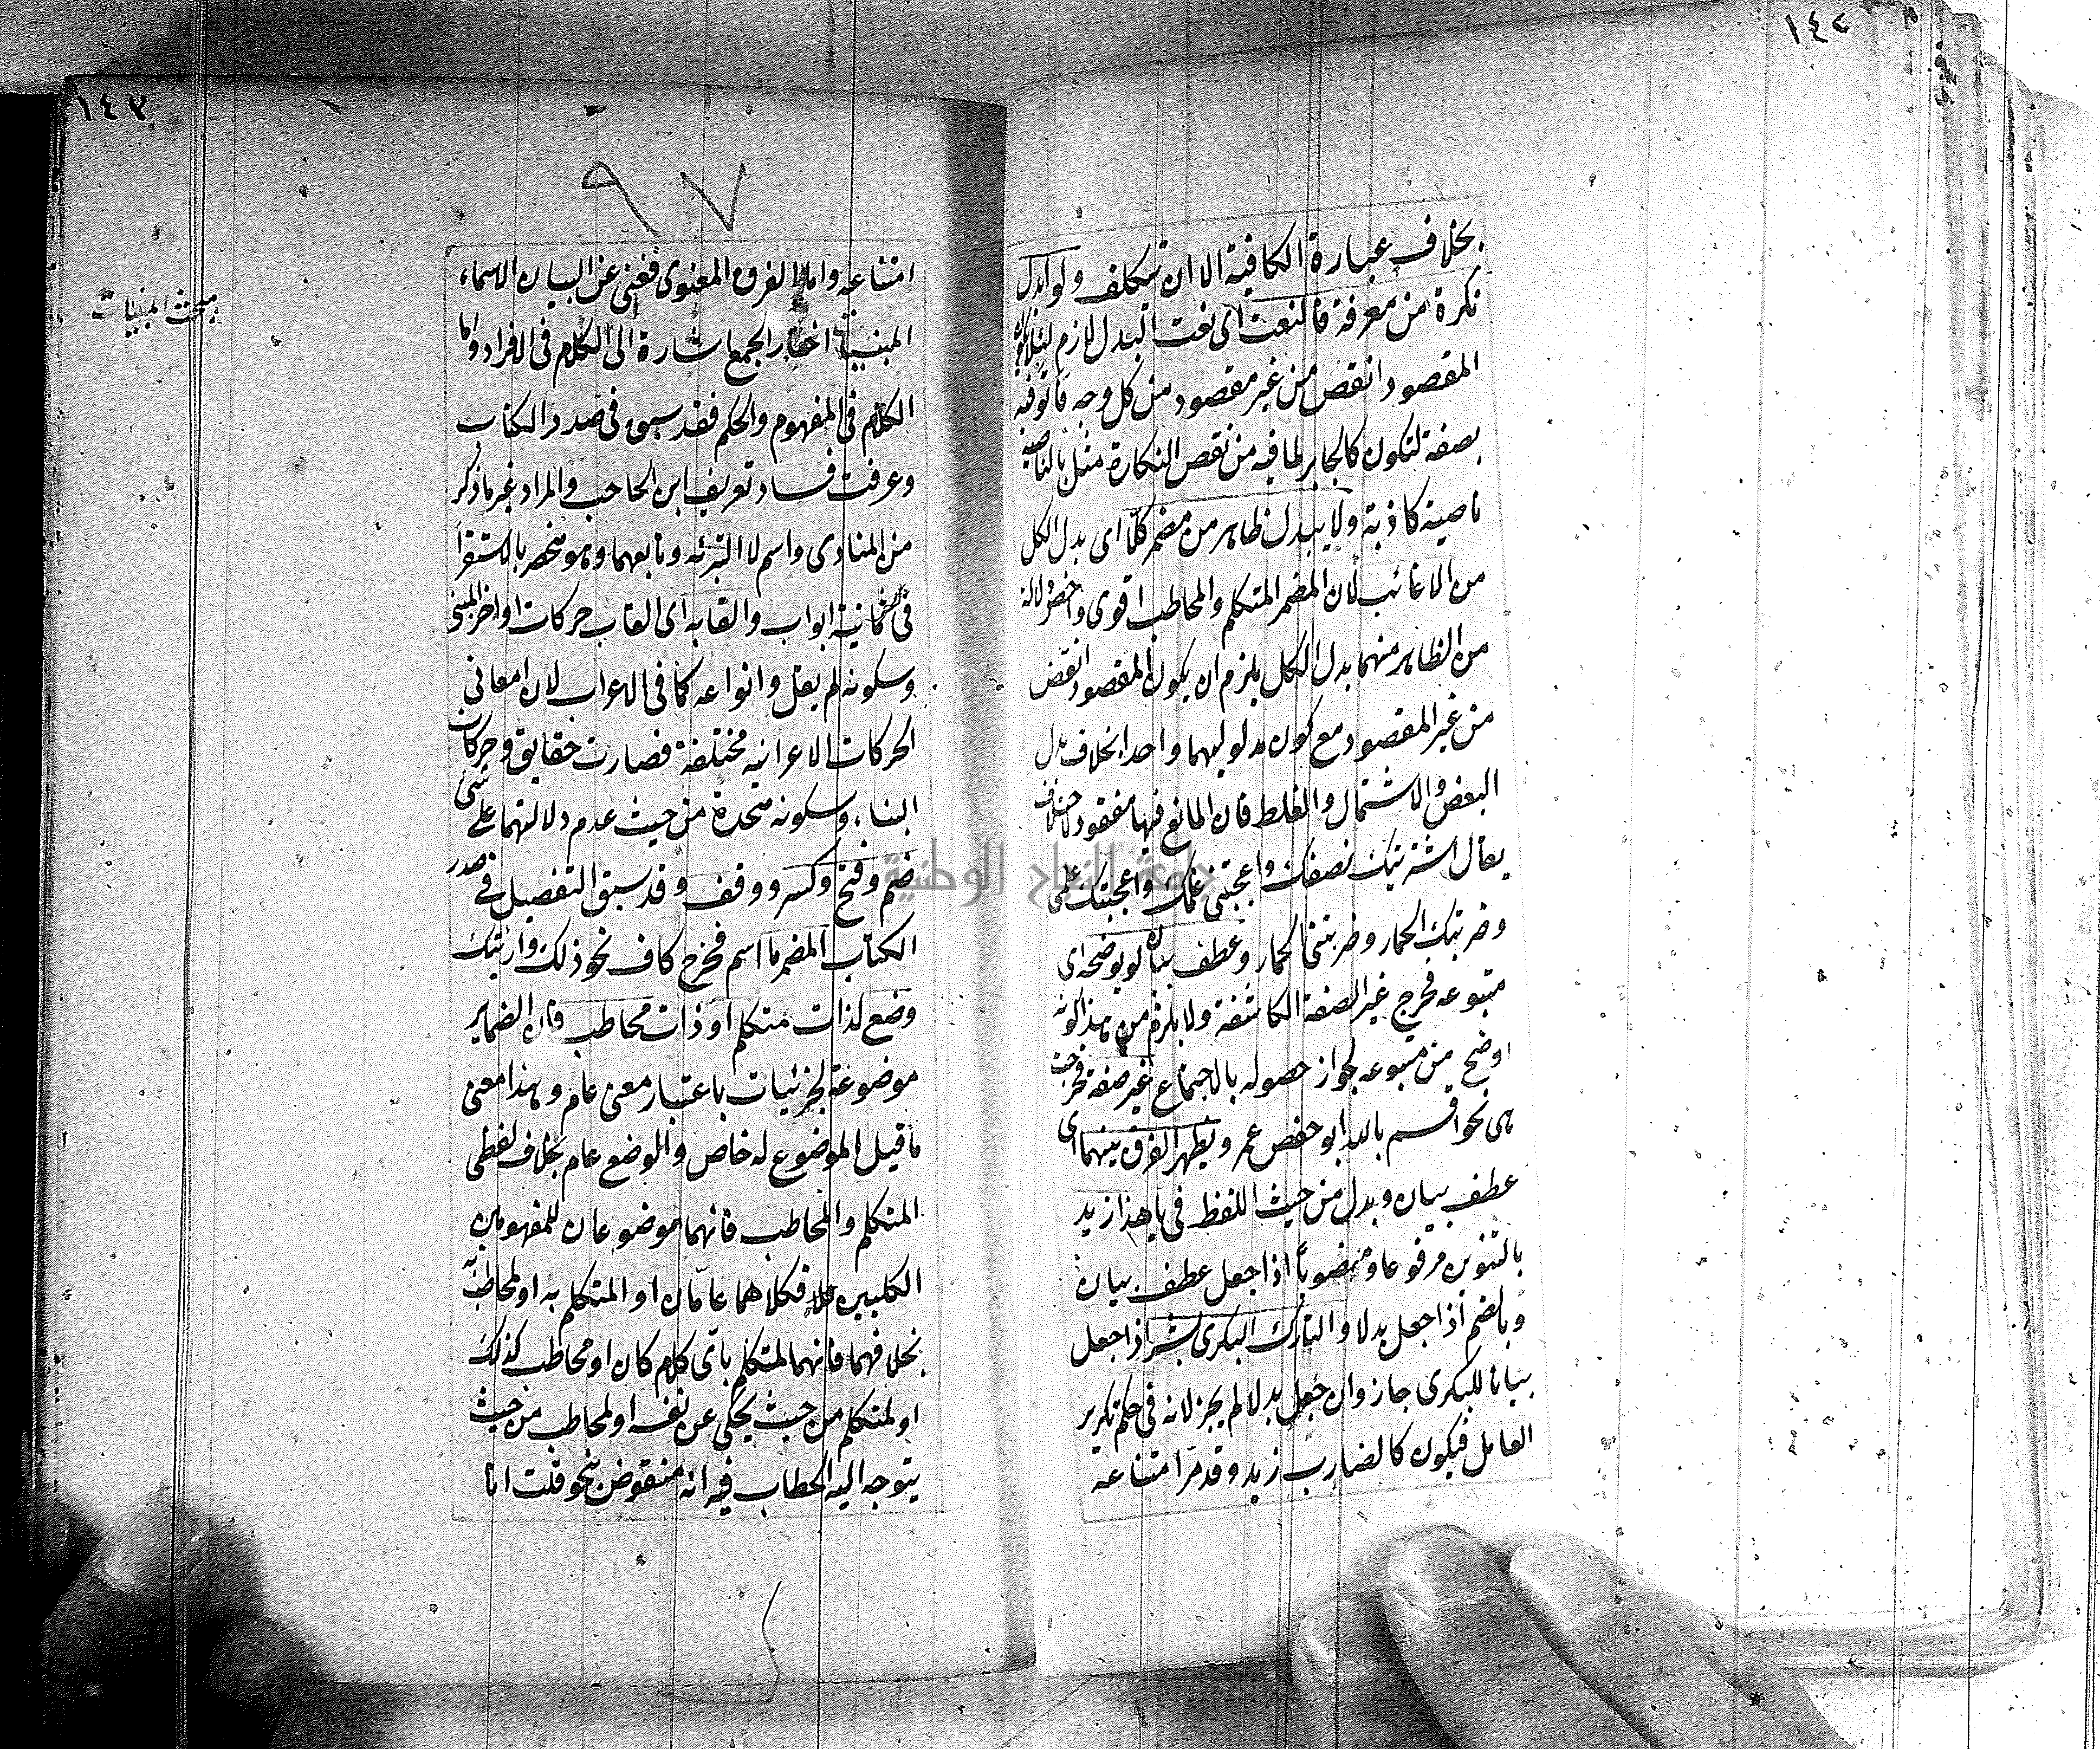 ١٤٢
بخلاف عبارة الكافية الا ان يتكلف ولو ابدل
نكرة من معرفة فالنعت اى نعت البدل لازم لئلا يكون
المقصود انقص من غير مقصود من كل وجه فاتوا فيه
بصفة لتكون كالجابر لما فيه من نقص النكارة مثل بالناصية
ناصية كاذبة ولا يبدل ظاهر من مضمر كلا اى بدل الكل
من الا غائب لان المضمر المتكلم والمخاطب اقوى واخص دلالة
من الظاهر منهما بدل الكل يلزم ان يكون المقصود انقص
من غير المقصود مع كون مدلوليهما واحدا بخلاف بدل
البعض والاشتمال والغلط فان المانع فيها مفقود
يقال اشتريتك نصفك واعجبتنى علمك واعجبتك علمى
وضربتك الحمار وضربتنى الحمار وعطف بيان لو يوضحه اى
متبوعه فخرج غير الصفة الكاشفة ولا يلزم من هذا كونه
اوضح من متبوعه لجواز حصوله بالاجتماع غير صفة فخرجت
هى نحو اقسم بالله ابو حفص عمر ويظهر الفرق بينهما اى
عطف بيان وبدل من حيث اللفظ فى يا هذا زيد
بالتنوين مرفوعا ومنصوبا اذا جعل عطف بيان
وبالضم اذا جعل بدلا والتارك البكرى بشر اذا جعل
بيانا للبكرى جاز وان جعل بدلا لم يجز لانه فى حكم تكرير
العامل فيكون كالضارب زيد وقد مر امتناعه
١٤٣
٩٧
مبحث المبنيات
امتناعه واما الفرق المعنوى فغنى عن البيان الاسماء
المبنية اختار الجمع اشارة الى الكلام فى الافراد واما
الكلام فى المفهوم والحكم فقد سبق فى صدر الكتاب
وعرفت فساد تعريف ابن الحاجب والمراد غير ما ذكر
من المنادى واسم لا التبرئه وتابعهما وهو منحصر بالاستقرا
فى ثمانية ابواب والقابه اى القاب حركات اواخر المبنى
وسكونه لم يقل وانواعه كما فى الاعراب لان معانى
الحركات الاعرابيه مختلفة فصارت حقايق وحركات
البناء وسكونه متحدة من حيث عدم دلالتهما على شئ
ضم وفتح وكسر ووقف وقد سبق التفصيل فى صدر
الكتاب المضمر ما اسم فخرج كاف نحو ذلك وارئيتك
وضع لذات متكلم او ذات مخاطب فان الضماير
موضوعة لجزئيات باعتبار معنى عام وهذا معنى
ما قيل الموضوع له خاص والوضع عام بخلاف لفظى
المتكلم والمخاطب فانهما موضوعان للمفهومين
الكليين فكلاهما عامان او المتكلم به او لمخاطب به
بخلافهما فانهما لمتكلم باى كلام كان او مخاطب كذلك
او لمتكلم من حيث يحكى عن نفسه او لمخاطب من حيث
يتوجه اليه الخطاب فيه انه منقوض بنحو قلت انا
جامعة النجاح الوطنية